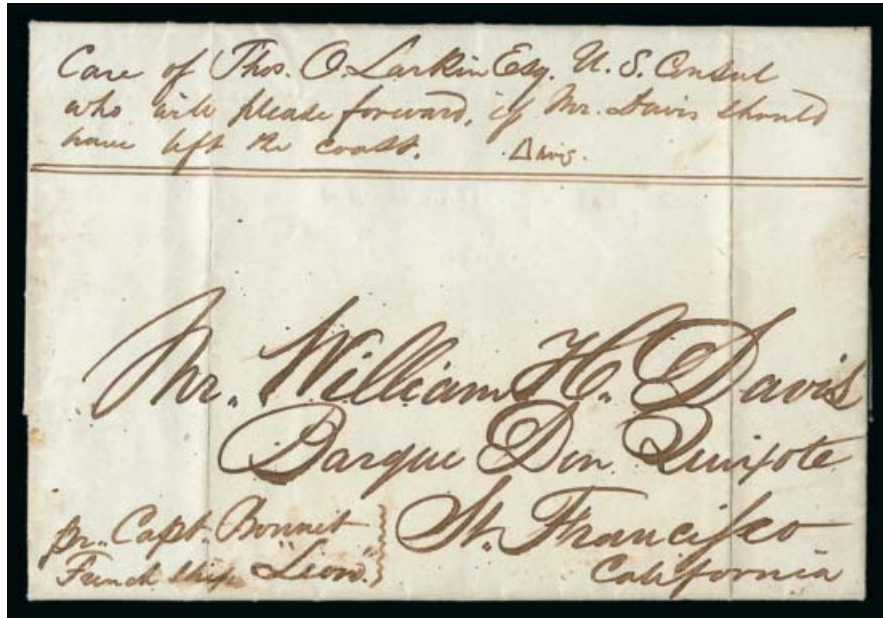 Care of Thos. O. Larkin Esq. U. S. Consul
who will please forward, if Mr. Davis should
have left the coast. Davis.
Mr. William H. Davis
Barque Don Quixote
St. Francisco
California
pr. Capt. Bonnet
French ship "Lion".